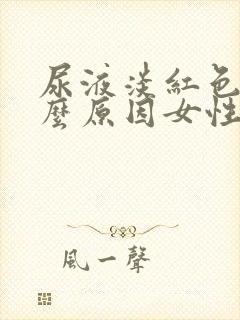 尿液淡紅色
麼原因女性
風一聲